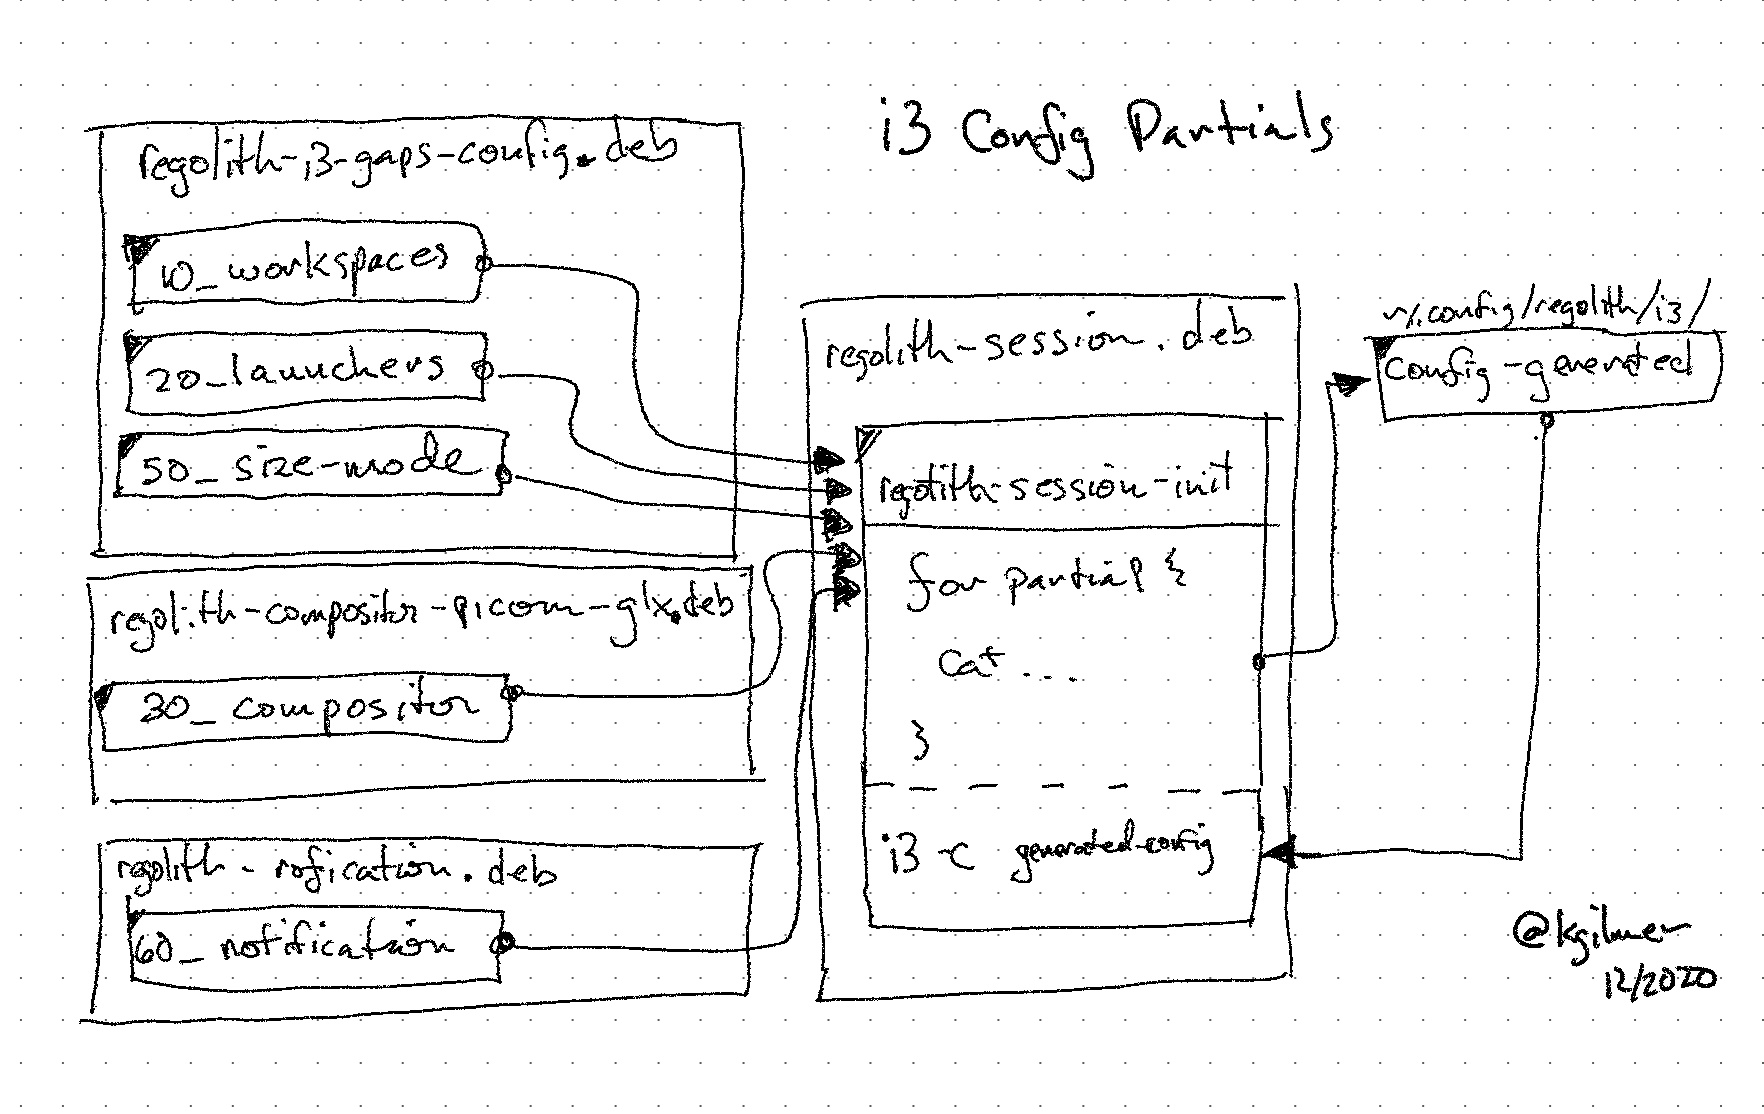 i3 Config Partials
regolith-i3-gaps-config.deb
10_workspaces
20_launchers
50_size-mode
regolith-compositor-picom-glx.deb
30_compositor
regolith-rofication.deb
60_notification
regolith-session.deb
regolith-session-init
for partial {
cat ...
}
i3 -c generated-config
~/.config/regolith/i3/
config-generated
@kgilmer
12/2020